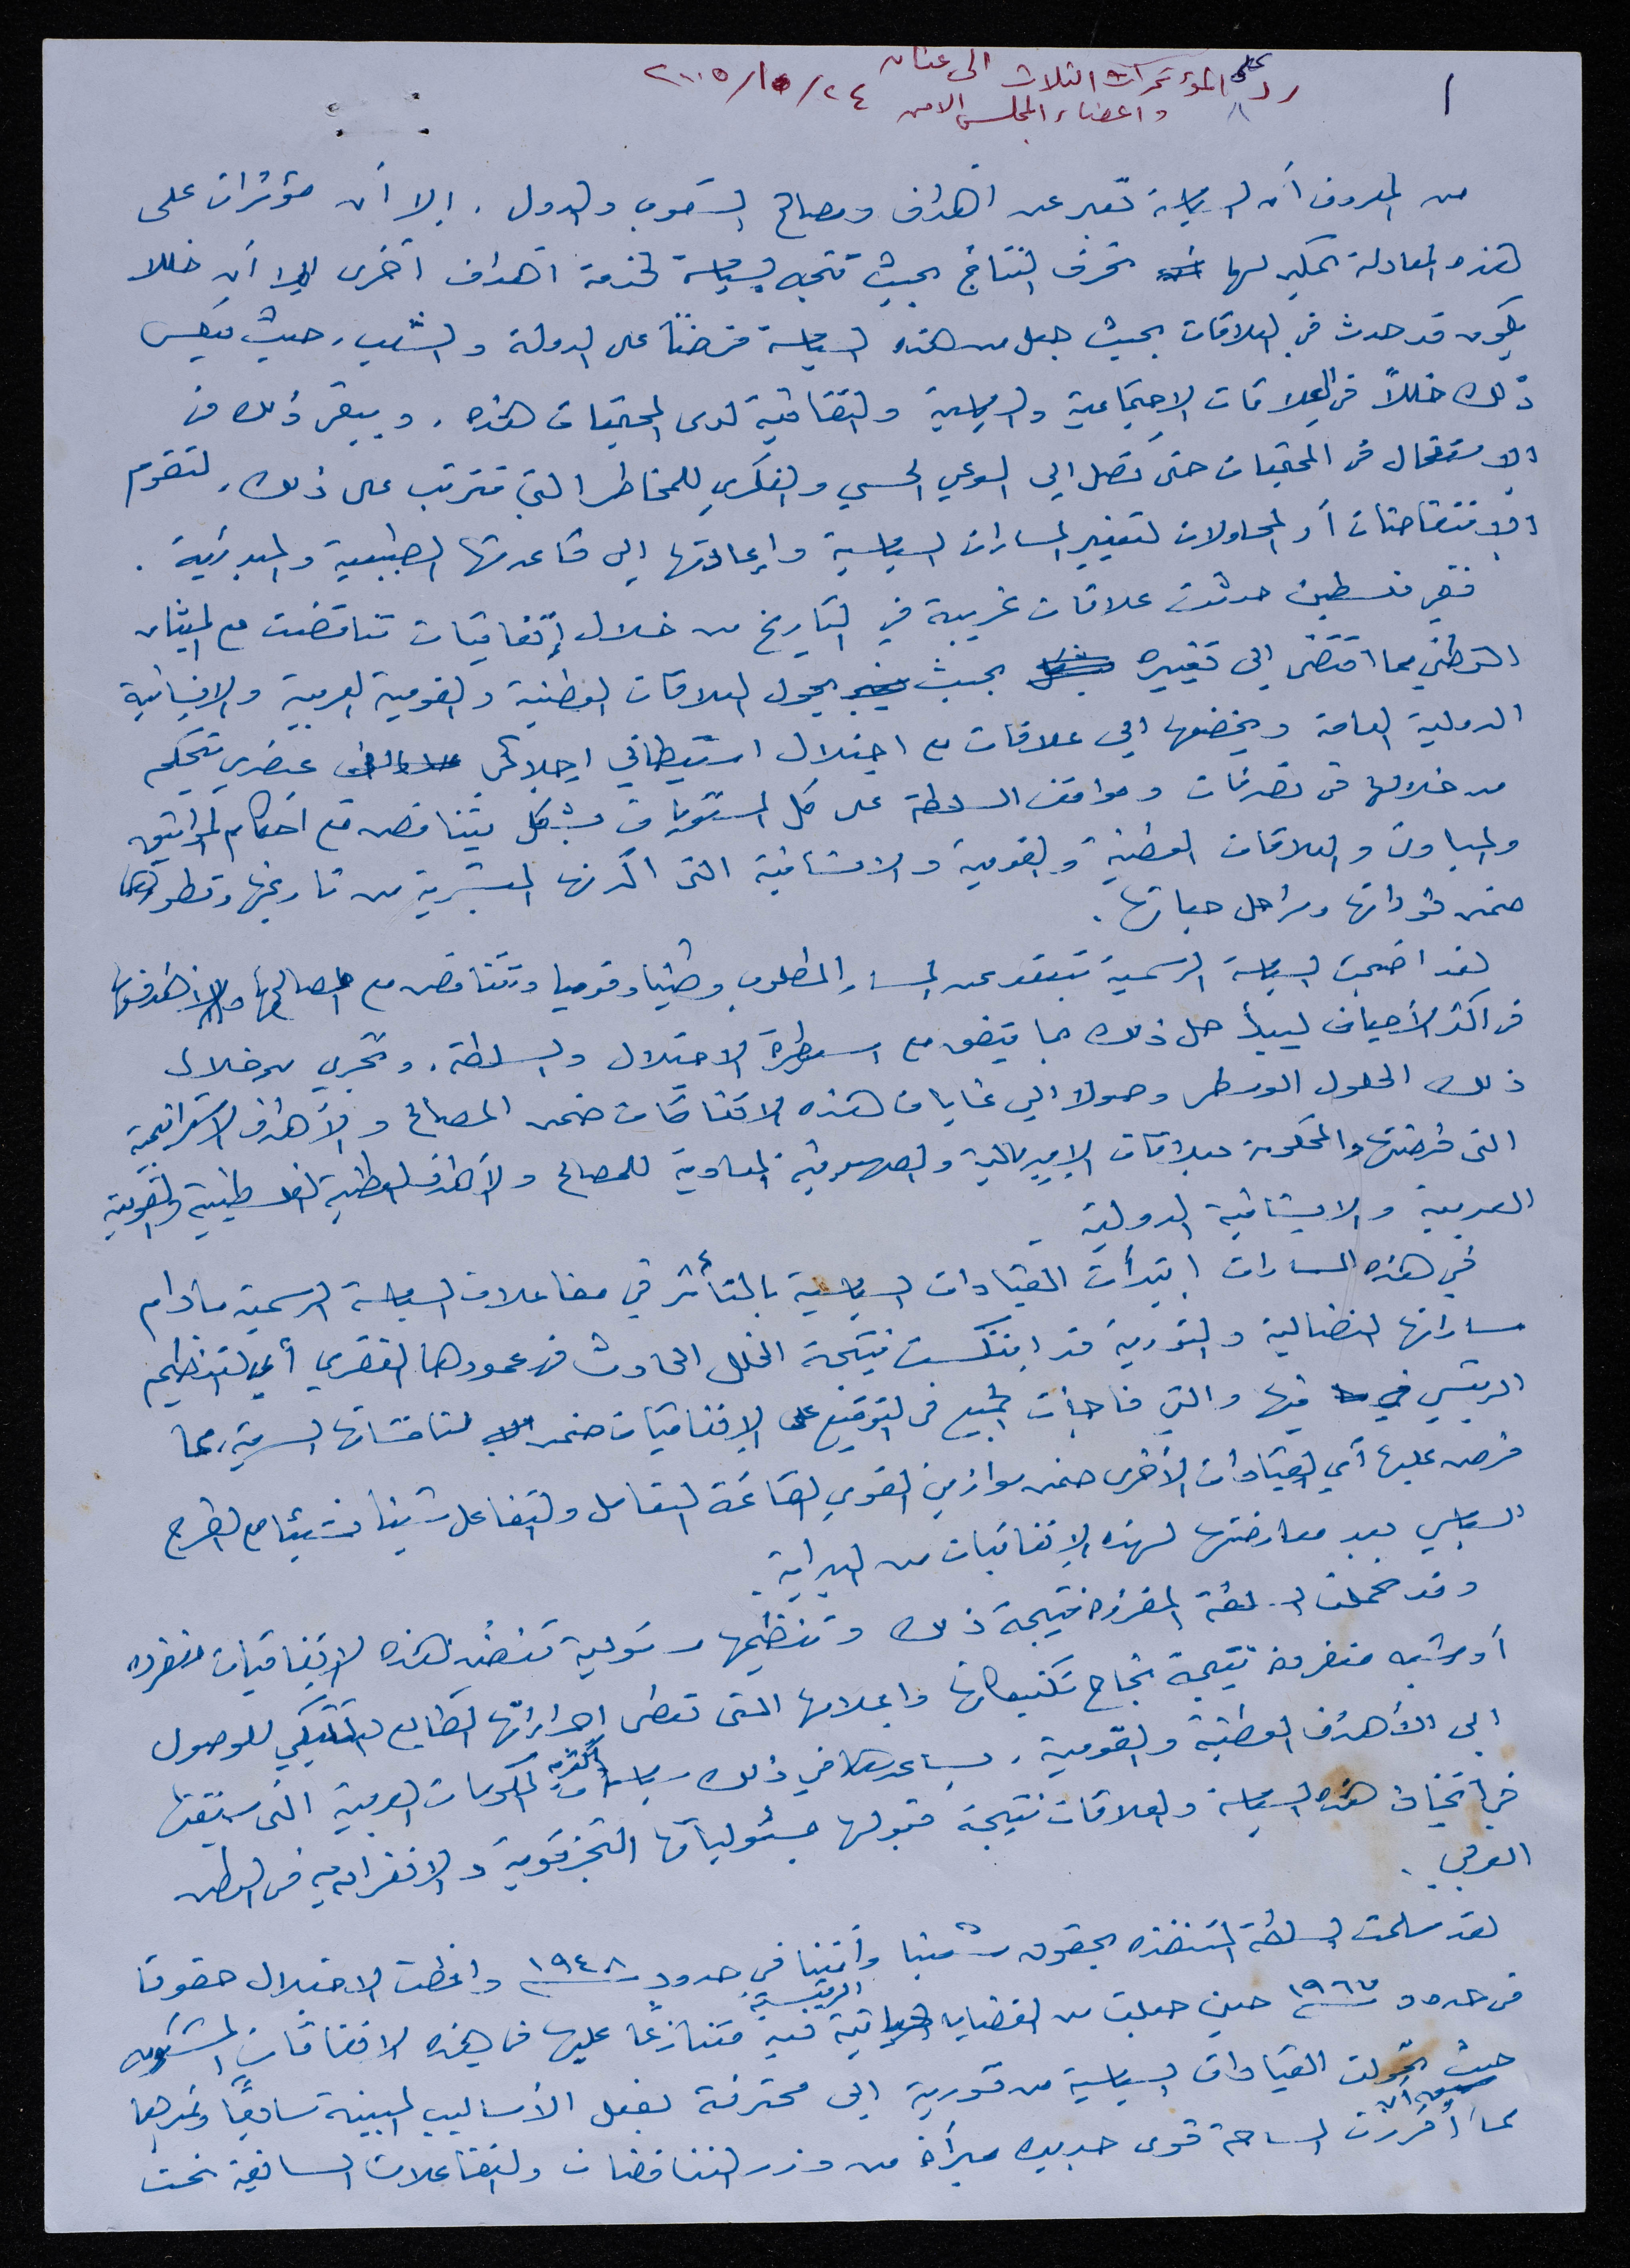 ١
رد على المؤتمرات الثلاث الى عنان
واعضاء المجلس الامن ٢٤/١٠/٢٠٠٥
من المعروف أن السياسة تعبر عن أهداف ومصالح الشعوب والدول. إلا أن مؤثرات على
هذه المعادلة يمكن لها تحرف النتائج بحيث تتجه السياسة لخدمة اهداف اخرى إلا أن خللا
يكون قد حدث في العلاقات بحيث جعل من هذه السياسة فرضًا على الدولة والشعب، حيث يعكس
ذلك خللاً في العلاقات الاجتماعية والسياسية والثقافية لدى المجتمعات هذه. ويبقى ذلك في
الاستفحال في المجتمعات حتى تصل إلى الوعي الحسي والفكري للمخاطر التي تترتب على ذلك، لتقوم
الانتفاضات أو المحاولات لتغيير المسارات السياسية وإعادتها إلى قاعدتها الطبيعية والمبدئية.
ففي فلسطين حدثت علاقات غريبة في التاريخ من خلال إتفاقيات تناقضت مع الميثاق
الوطني مما اقتضى الى تغييره بحيث يحول العلاقات الوطنية والقومية العربية والانسانية
الدولية العامة ويخضعها الى علاقات مع احتلال استيطاني إجلائي عنصري يتحكم
من خلالها في تصرفات ومواقف السلطة على كل المستويات بشكل يتناقض مع احكام المواثيق
والمباديء والعلاقات الوطنية والقومية والانسانية التي اكدتها البشرية من تاريخها وتطورها
ضمن ثوراتها ومراحل حياتها.
لقد اضحت السياسة الرسمية تبتعد عن المسار المطلوب وطنيا وقوميا وتتناقض مع مصالحها وأهدافها
في اكثر الأحيان ليبدأ حل ذلك بما يتفق مع سيطرة الاحتلال والسلطة. وتجري من خلال
ذلك الحلول الوسطى وصولا الى غايات هذه الاتفاقات ضمن المصالح والأهداف الاستراتيجية
التي فرضتها والمحكومة بعلاقات الإمبريالية والصهيونية المعادية للمصالح والأهداف الوطنية الفلسطينية والقومية
العربية والانسانية الدولية.
في هذه المسارات ابتدأت القيادات السياسية بالتأثر في مفاعلات السياسة الرسمية مادام
مساراتها النضالية والثورية قد انتكست نتيجة الخلل الحادث في عمودها الفقري أي التنظيم
الرئيسي فيها والتي فاجأت الجميع في التوقيع على الاتفاقيات ضمن مناقشاتها السرية، مما
فرض عليها أي القيادات الأخرى ضمن موازين القوى لصناعة التعامل والتفاعل شيئا فشيئا مع الطرح
السياسي بعد معارضتها لهذه الاتفاقيات من البداية.
وقد تحملت السلطة المنفردة نتيجة ذلك وتنظيمها مسئولية تنفيذ هذه الاتفاقيات منفردة
أو شبه منفردة نتيجة نجاح تكتيكاتها وإعلامها التي تعطي إجراءاتها الطابع التكتيكي للوصول
الى الأهداف الوطنية والقومية. يساعدها في ذلك سياسات أكثرية الحكومات العربية التي سبقتها
في اتخاذ هذه السياسة والعلاقات نتيجة قبولها مسئولياتها التجزيئية والانفرادية في الوطن
العربي.
لقد سلمت السلطة المتنفذه بحقوق شعبنا وأمتنا في حدود ١٩٤٨ واعطت الاحتلال حقوقا
في حدود ١٩٦٧ حين جعلت من القضايا الرئيسية فيه متنازعًا عليها في هذه الاتفاقات المشئومة
حيث تحولت القيادات السياسية من ثورية الى محترفة بفعل الأساليب المبينة سابقًا وغيرها
كما أفرزت الساحة قوى جديدة مبرأة من وزر التناقضات والتفاعلات السابقة تحت